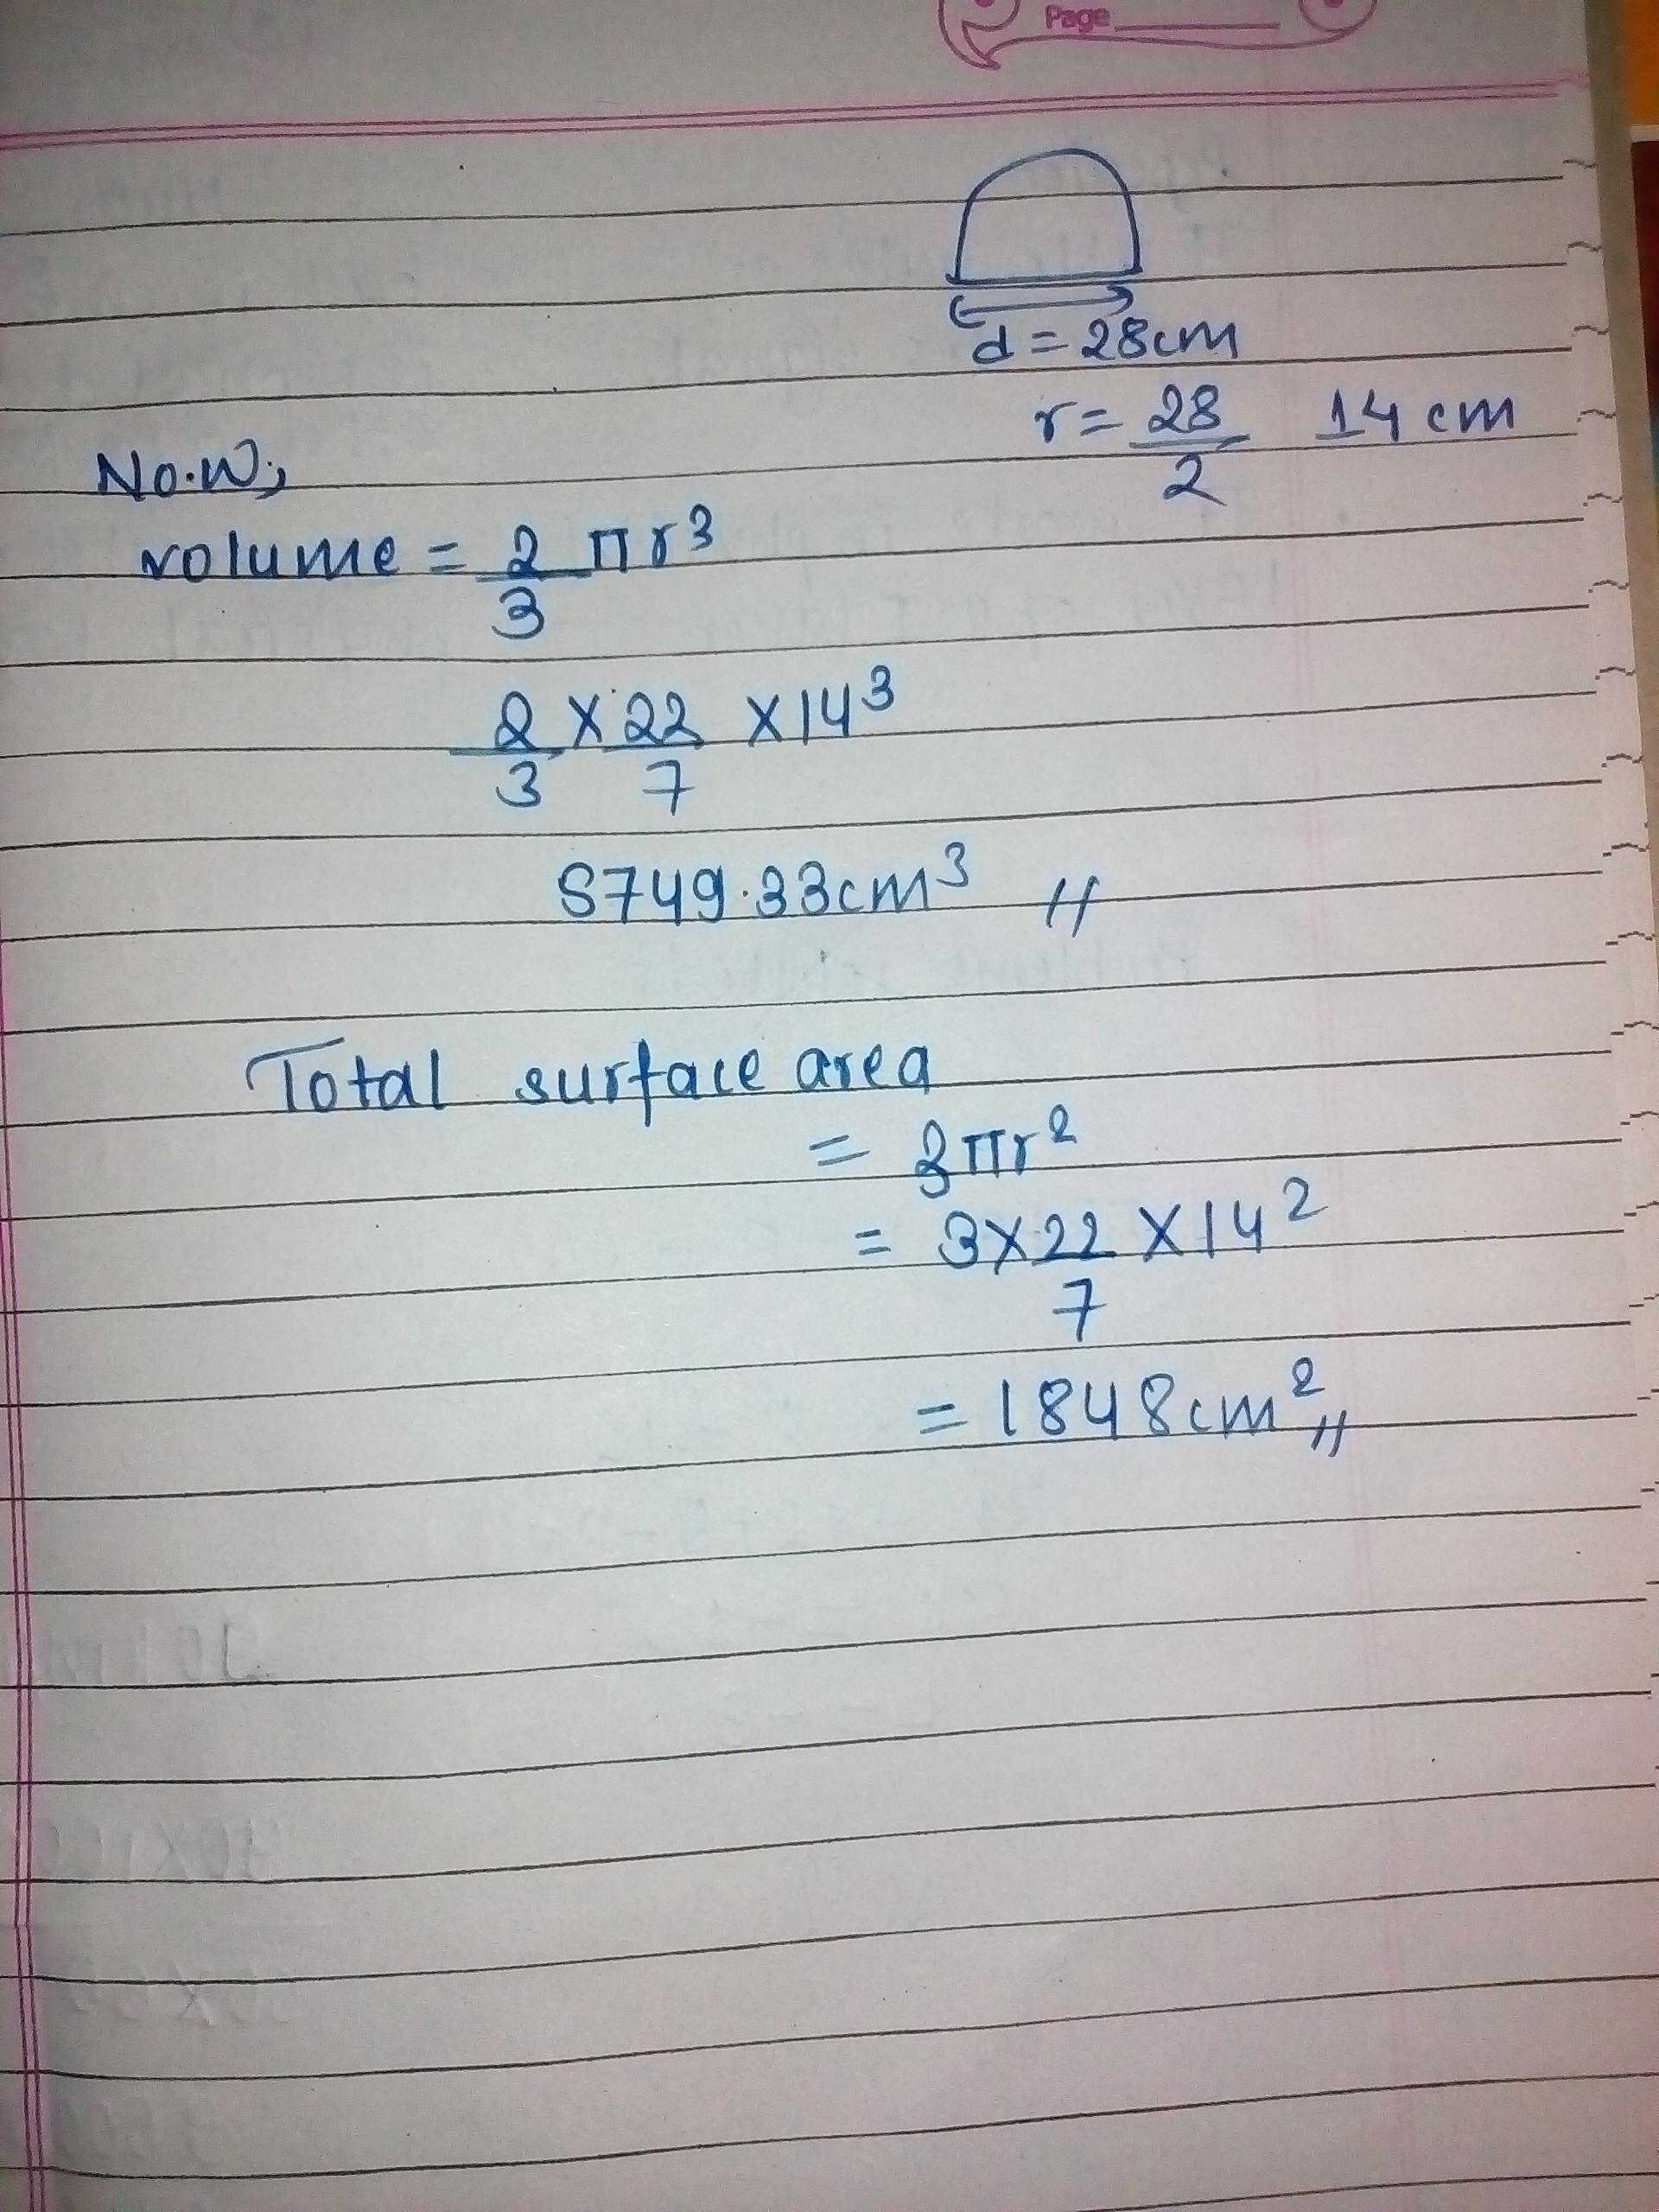 Page
d = 28cm
r = 28/2 14 cm
No.w;
volume = 2/3 πr³
2/3 × 22/7 × 14³
5749.33cm³ //
Total surface area
= 3πr²
= 3 × 22/7 × 14²
= 1848cm² //